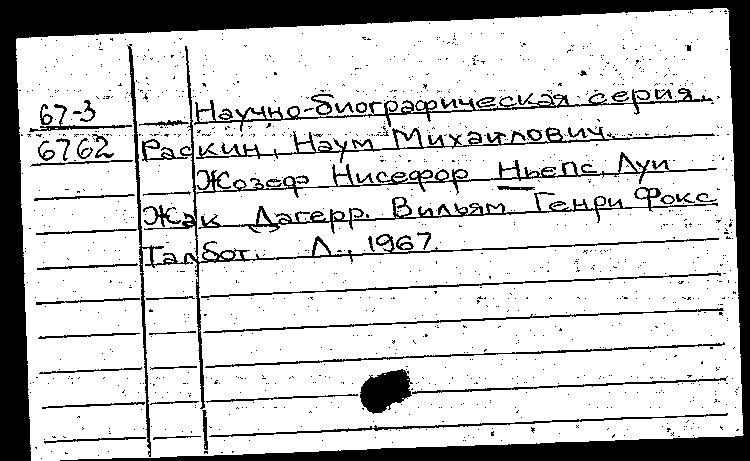 67-3 Научно-биографическая серия.
6762 Раскин, Наум Михайлович.
Жозеф Нисефор Ньепс, Луи
Жак Дагерр. Вильям Генри Фокс
Талбот. Л., 1967.